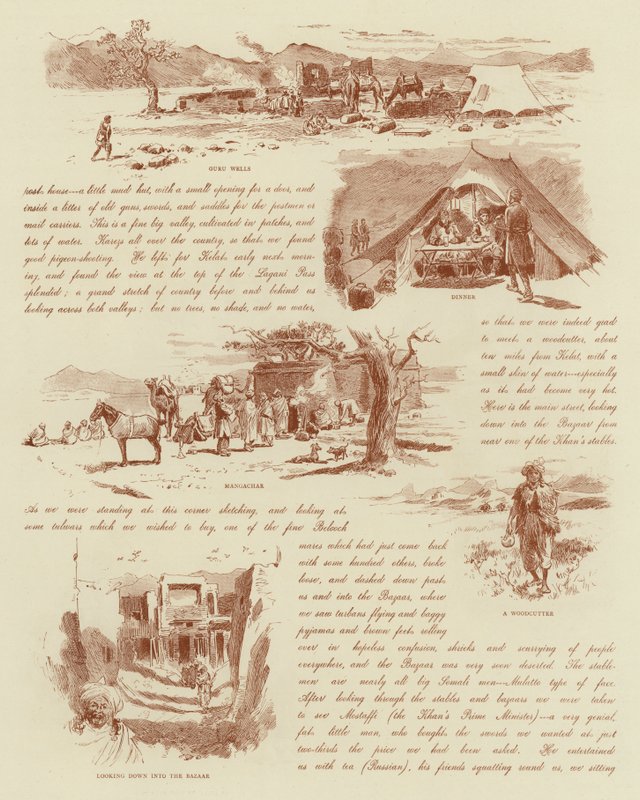 GURU WELLS
post house—a little mud hut, with a small opening for a door, and
inside a litter of old guns, swords, and saddles for the postmen or
mail carriers. This is a fine big valley, cultivated in patches, and
lots of water. Karezs all over the country, so that we found
good pigeon-shooting. We left for Kelat early next morn-
ing, and found the view at the top of the Lagani Pass
splendid; a grand stretch of country before and behind us
looking across both valleys; but no trees, no shade, and no water,
DINNER
so that we were indeed glad
to meet a woodcutter, about
ten miles from Kelat, with a
small skin of water—especially
as it had become very hot.
Here is the main street, looking
down into the Bazaar from
near one of the Khan's stables.
MANGACHAR
As we were standing at this corner sketching, and looking at
some tulwars which we wished to buy, one of the fine Belooch
mares which had just come back
with some hundred others, broke
loose, and dashed down past
us and into the Bazaar, where
we saw turbans flying and baggy
pyjamas and brown feet rolling
over in hopeless confusion, shrieks and scurrying of people
everywhere, and the Bazaar was very soon deserted. The stable-
men are nearly all big Somali men—Mulatto type of face.
After looking through the stables and bazaars we were taken
to see Mostaffi (the Khan's Prime Minister)—a very genial,
fat, little man, who bought the swords we wanted at just
two-thirds the price we had been asked. He entertained
us with tea (Russian), his friends squatting round us, we sitting
A WOODCUTTER
LOOKING DOWN INTO THE BAZAAR